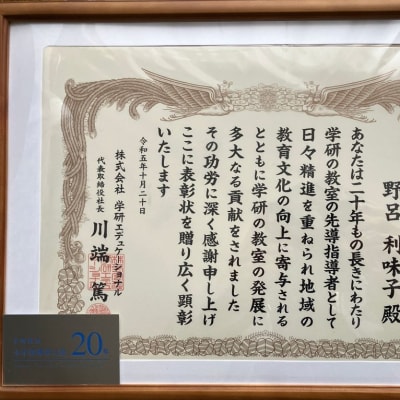 野呂 利味子 殿
あなたは二十年もの長きにわたり
学研の教室の先導指導者として
日々精進を重ねられ地域の
教育文化の向上に寄与される
とともに学研の教室の発展に
多大なる貢献をされました
その功労に深く感謝申し上げ
ここに表彰状を贈り広く顕彰
いたします
令和五年十月二十日
株式会社 学研エデュケーショナル
代表取締役社長 川端 篤
20